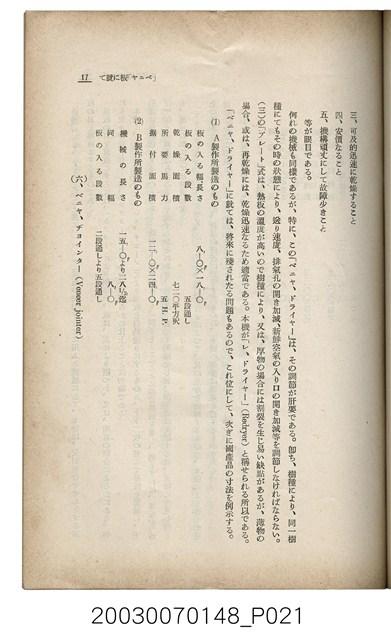 て就に板「ヤニベ」 17
三、可及的迅速に乾燥すること
四、安價なること
五、機構頑丈にして故障少きこと
等が眼目である。
何れの機械も同樣であるが、特に、この「ベニヤ、ドライヤー」は、その調節が肝要である。卽ち、樹種により、同一樹
種にてもその時の狀態により、送り速度、排氣孔の開き加減、新鮮空氣の入り口の開き加減等を調節しなければならない。
(三)の「プレート」式は、熱板の溫度が高いので樹種により、又は、厚物の場合には割裂を生じ易い缺點があるが、薄物の
場合、或は、再乾燥には、乾燥迅速なるため適當である。本機が「レ、ドライヤー」(Redryer)と稱せられる所以である。
「ベニヤ、ドライヤー」に就ては、將來に殘されたる問題もあるので、これ位にして、次ぎに國產品の寸法を例示する。
(1) A製作所製造のもの
板の入る幅,長さ 八—〇×一八—〇
板の入る段數 五段通し
乾燥面積 七二〇平方呎
所要馬力 五 H. P.
据付面積 一二—〇×二四—〇
(2) B製作所製造のもの
機械の長さ 一五—〇より二八迄
同 幅 八—〇
板の入る段數 二段通しより五段通し
(六、ベニヤ、ヂョインター(Veneer jointer)
20030070148_P021